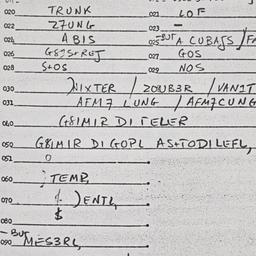 020 TRUNK 021 LOF
022 Z7UNG 023 —
024 ABIS 025 BUT A CUBAJS /FA
026 G8JS+REJ 027 GOS
028 S+OS 029 NOS
030 NIXTER / ZOUB3R / VANIT
031 AFM7 LUNG / AFM7CUNG
040 G8IMIR DI TELER
050 G8IMIR DI GOPL AS+TODILEFL,
051 0
060 TEMP,
070 )ENTL,
$
080
— BUT
090 MES3RL,